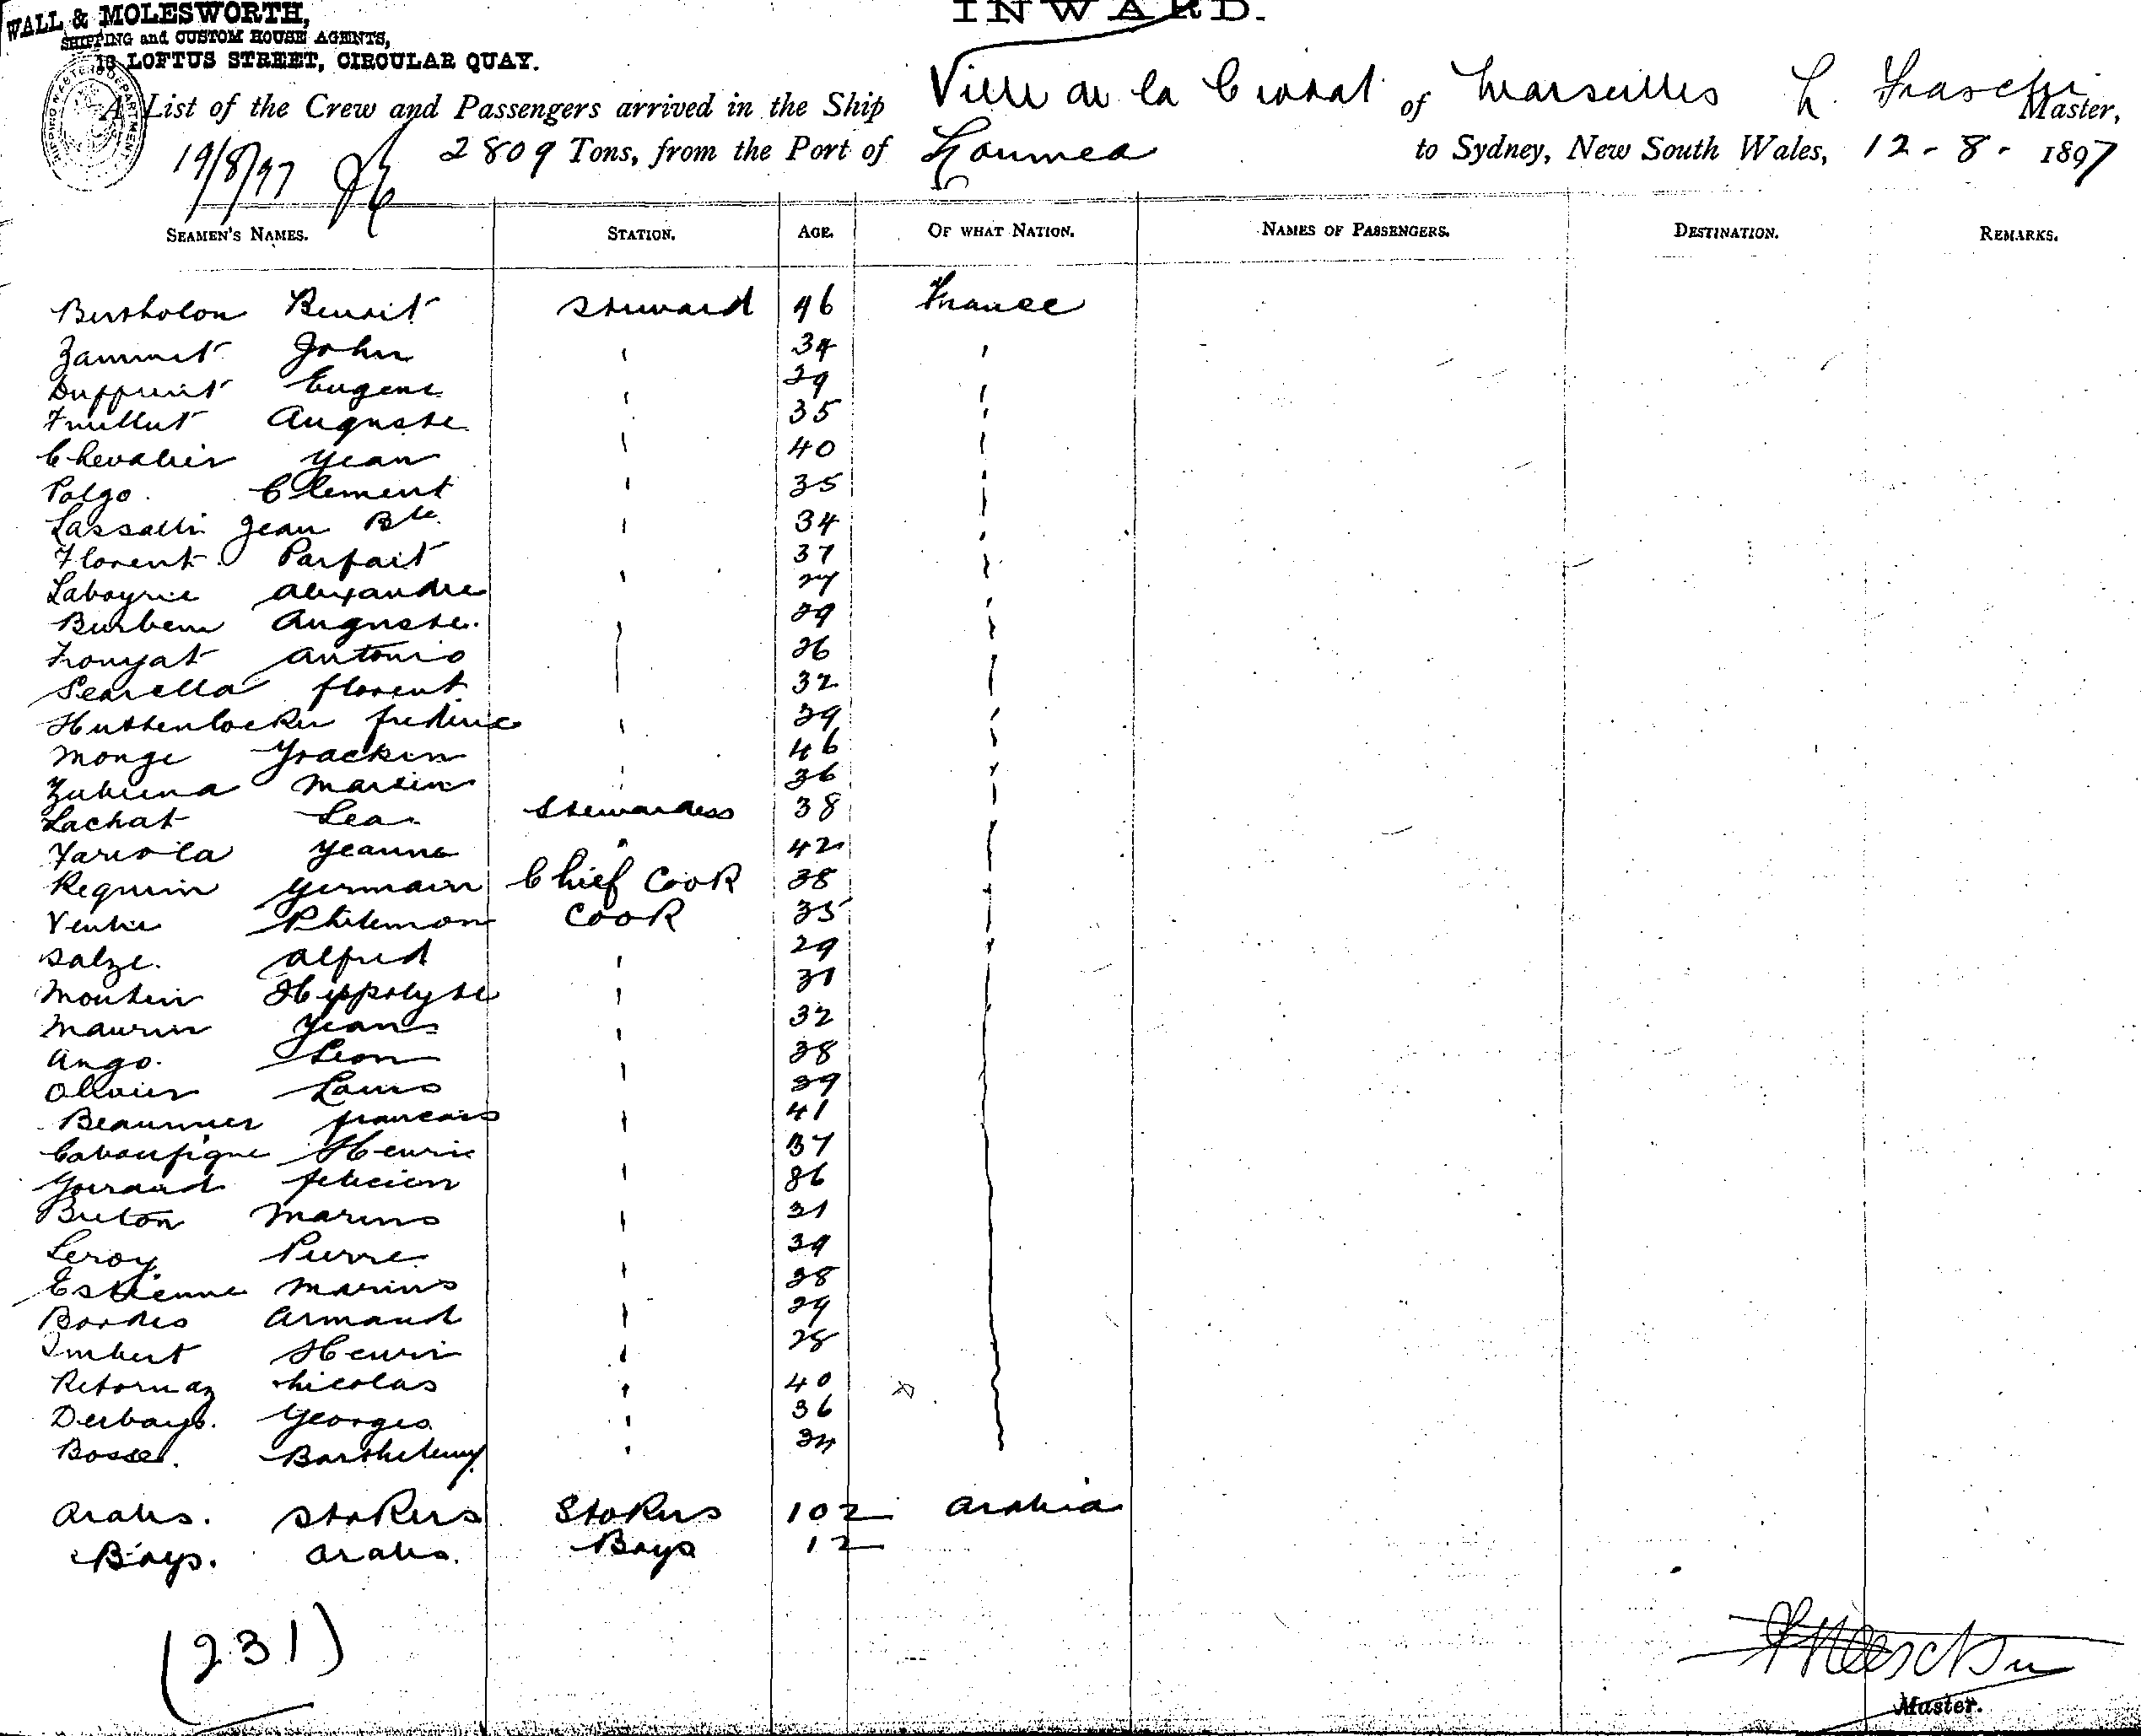 INWARD.
WALL & MOLESWORTH,
SHIPPING and CUSTOM HOUSE AGENTS,
18 LOFTUS STREET, CIRCULAR QUAY.
A List of the Crew and Passengers arrived in the Ship Ville de la Ciotat of Marseilles L. Master,
19/8/97 2809 Tons, from the Port of Noumea to Sydney, New South Wales, 12-8-1897
SEAMEN'S NAMES. STATION. AGE. OF WHAT NATION. NAMES OF PASSENGERS. DESTINATION. REMARKS.
Bertholon Benoit Steward 46 France
Zammit John ' 34 '
Eugene ' 29 '
Auguste ' 35 '
Chevalier Jean ' 40 '
Polge. Clement ' 35 '
Lassalle Jean Bte. ' 34 '
Florent Parfait 37
Labayrie Alexandre ' 27
Auguste. 29
Antonio 26
florent 32
Huttenlocker frederic ' 29
Monge Joachim 46
Martin 36
Lachat Lea Stewardess 38
Jeanne " 42
Requin Germain Chief Cook 38
Philemon Cook 35
Salze. Alfred ' 29
Moutin Hippolyte ' 31
Maurin Jean ' 32
Ango. Leon 38
Olivier Louis ' 39
Beaumier francois ' 41
Henri 37
felicien ' 36
Breton Marius ' 31
Leroy Pierre 39
Estienne Marius ' 28
Bordes Armand ' 29
Imbert Henri ' 28
Retornaz Nicolas ' 40
Georges ' 36
Bosse. Barthelemy ' 34
Arabs. Stokers Stokers 102 Arabia
Boys. Arabs. Boys 12
(231)
Master.